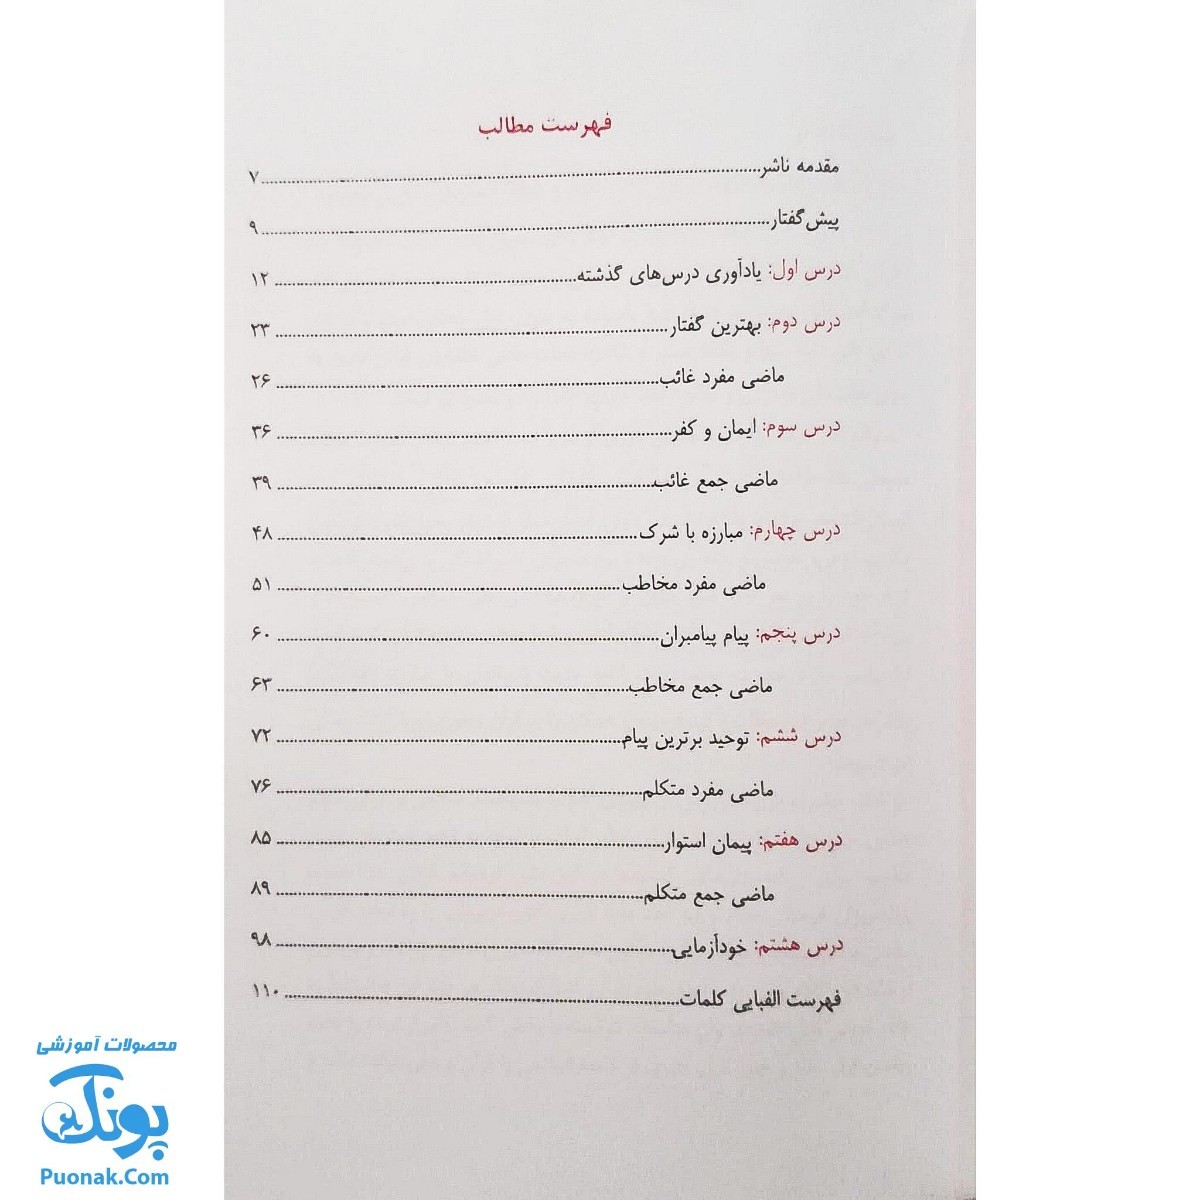 فهرست مطالب
مقدمه ناشر ۷
پیش‌گفتار ۹
درس اول: یادآوری درس‌های گذشته ۱۲
درس دوم: بهترین گفتار ۲۳
ماضی مفرد غائب ۲۶
درس سوم: ایمان و کفر ۳۶
ماضی جمع غائب ۳۹
درس چهارم: مبارزه با شرک ۴۸
ماضی مفرد مخاطب ۵۱
درس پنجم: پیام پیامبران ۶۰
ماضی جمع مخاطب ۶۳
درس ششم: توحید برترین پیام ۷۲
ماضی مفرد متکلم ۷۶
درس هفتم: پیمان استوار ۸۵
ماضی جمع متکلم ۸۹
درس هشتم: خودآزمایی ۹۸
فهرست الفبایی کلمات ۱۱۰
محصولات آموزشی
پونک
Puonak.Com